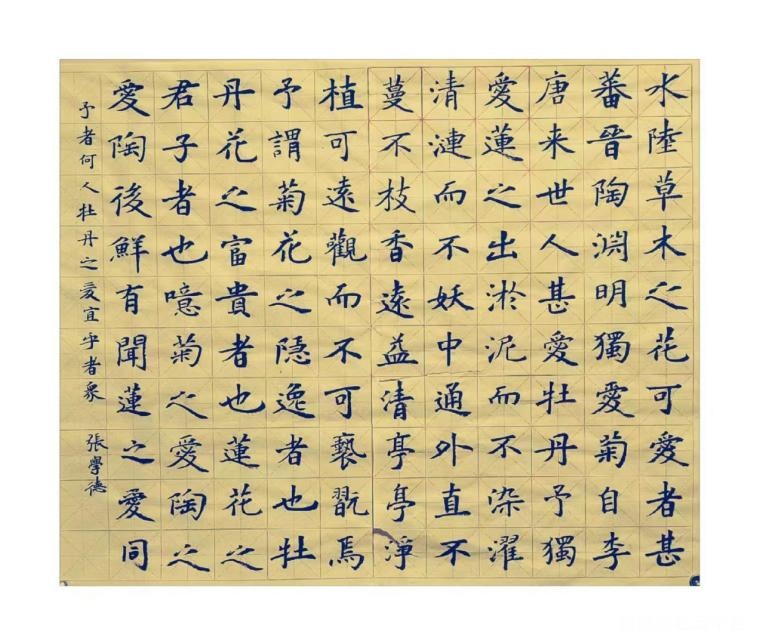 水陸草木之花可愛者甚
蕃晉陶淵明獨愛菊自李
唐来世人甚愛牡丹予獨
愛蓮之出淤泥而不染濯
清漣而不妖中通外直不
蔓不枝香遠益清亭亭淨
植可遠觀而不可褻翫焉
予謂菊花之隱逸者也牡
丹花之富貴者也蓮花之
君子者也噫菊之愛陶之
愛陶後鮮有聞蓮之愛同
予者何人牡丹之愛宜乎者衆
張學德